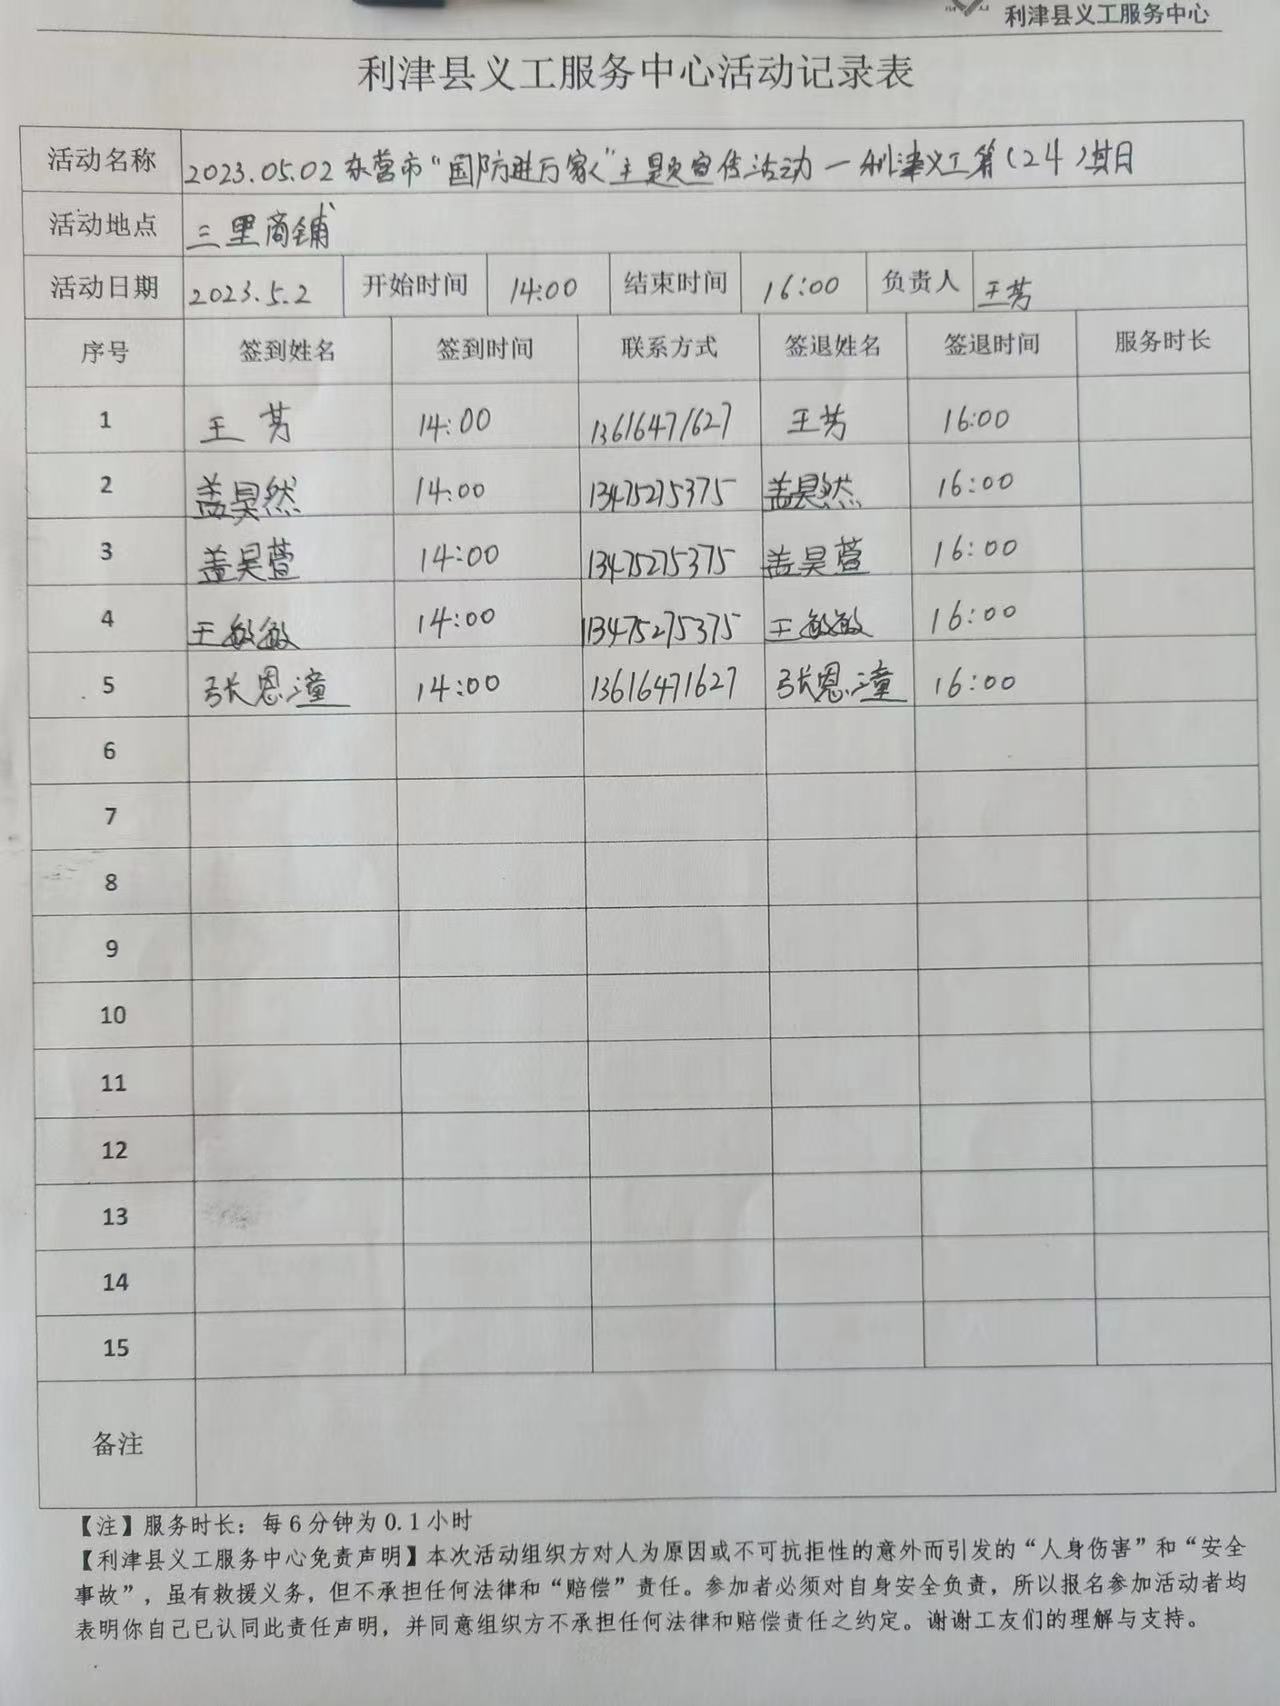 利津县义工服务中心
利津县义工服务中心活动记录表
活动名称 2023.05.02东营市“国防进万家”主题宣传活动—利津义工第(24)期日
活动地点 三里商铺
活动日期 2023.5.2 开始时间 14:00 结束时间 16:00 负责人 王芳
序号 签到姓名 签到时间 联系方式 签退姓名 签退时间 服务时长
1 王芳 14:00 13616471627 王芳 16:00
2 盖昊然 14:00 13475275375 盖昊然 16:00
3 盖昊萱 14:00 13475275375 盖昊萱 16:00
4 王敏敏 14:00 13475275375 王敏敏 16:00
5 张恩潼 14:00 13616471627 张恩潼 16:00
6
7
8
9
10
11
12
13
14
15
备注
【注】服务时长：每6分钟为0.1小时
【利津县义工服务中心免责声明】本次活动组织方对人为原因或不可抗拒性的意外而引发的“人身伤害”和“安全
事故”，虽有救援义务，但不承担任何法律和“赔偿”责任。参加者必须对自身安全负责，所以报名参加活动者均
表明你自己已认同此责任声明，并同意组织方不承担任何法律和赔偿责任之约定。谢谢工友们的理解与支持。